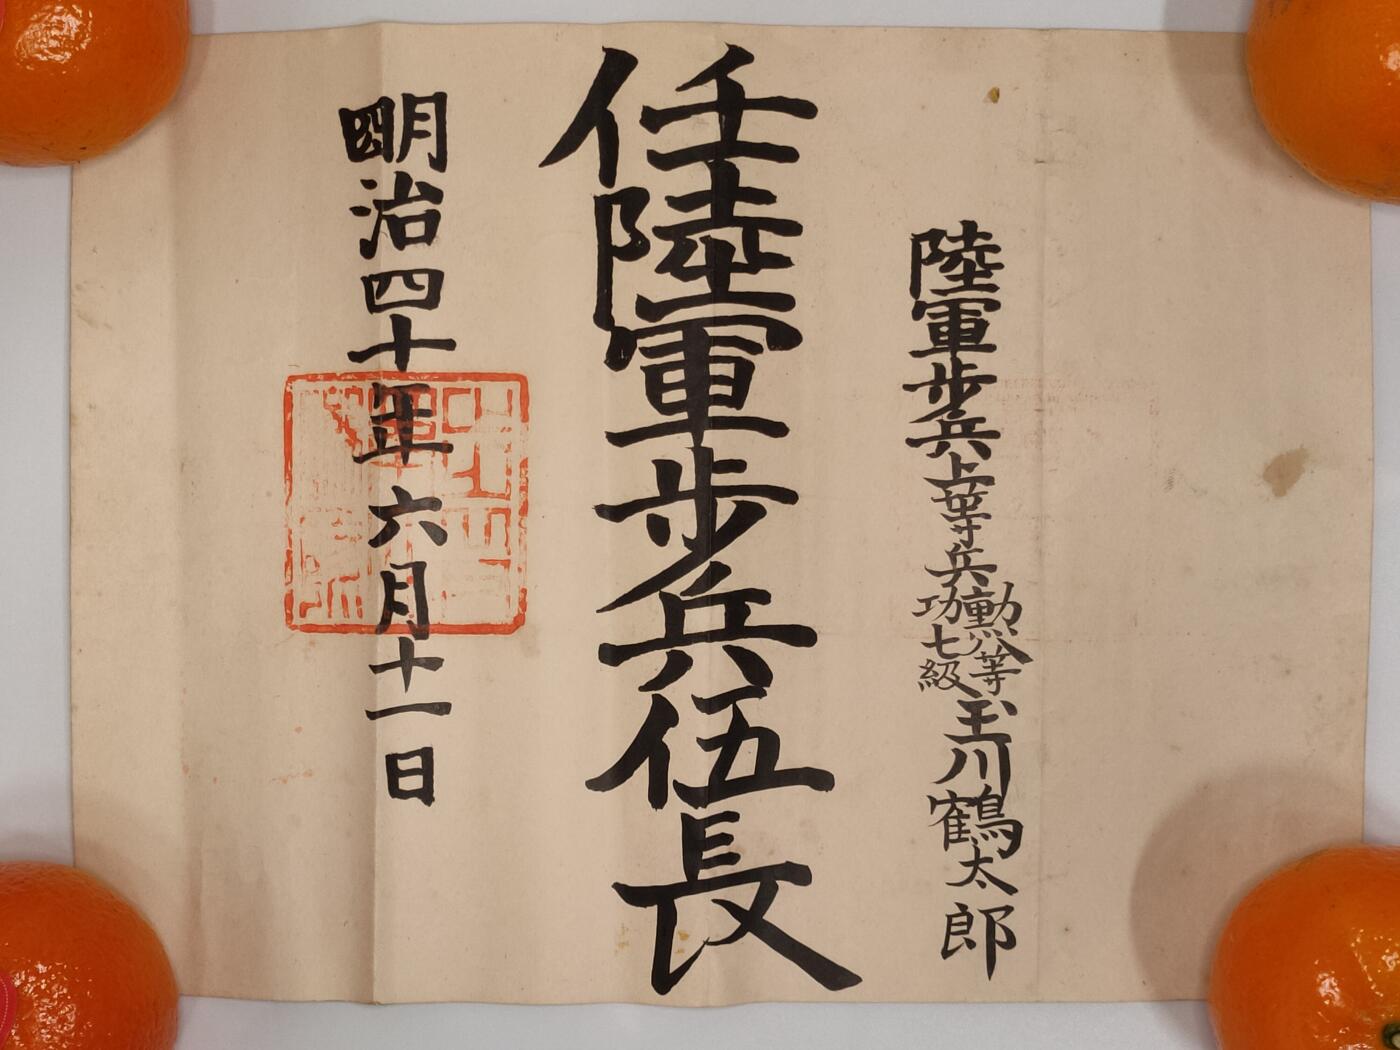 陸軍歩兵上等兵勲八等功七級玉川鶴太郎
任陸軍歩兵伍長
明治四十年六月十一日